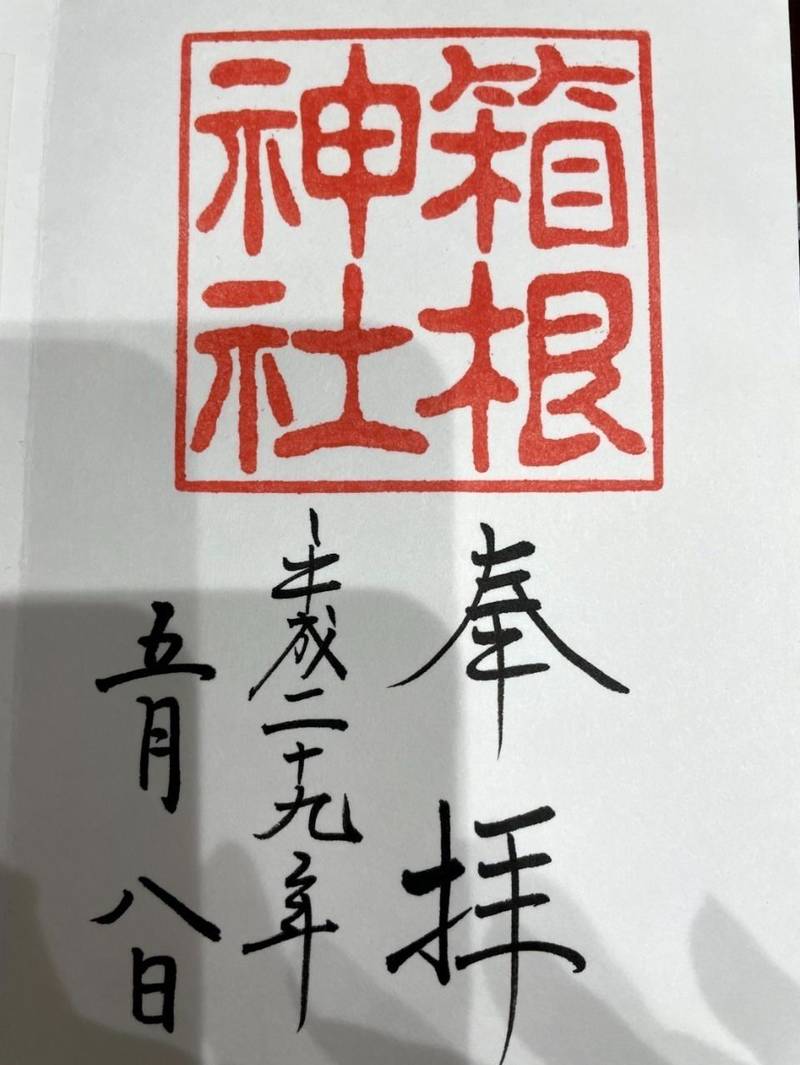 箱根
神社
奉拝
平成二十九年
五月八日